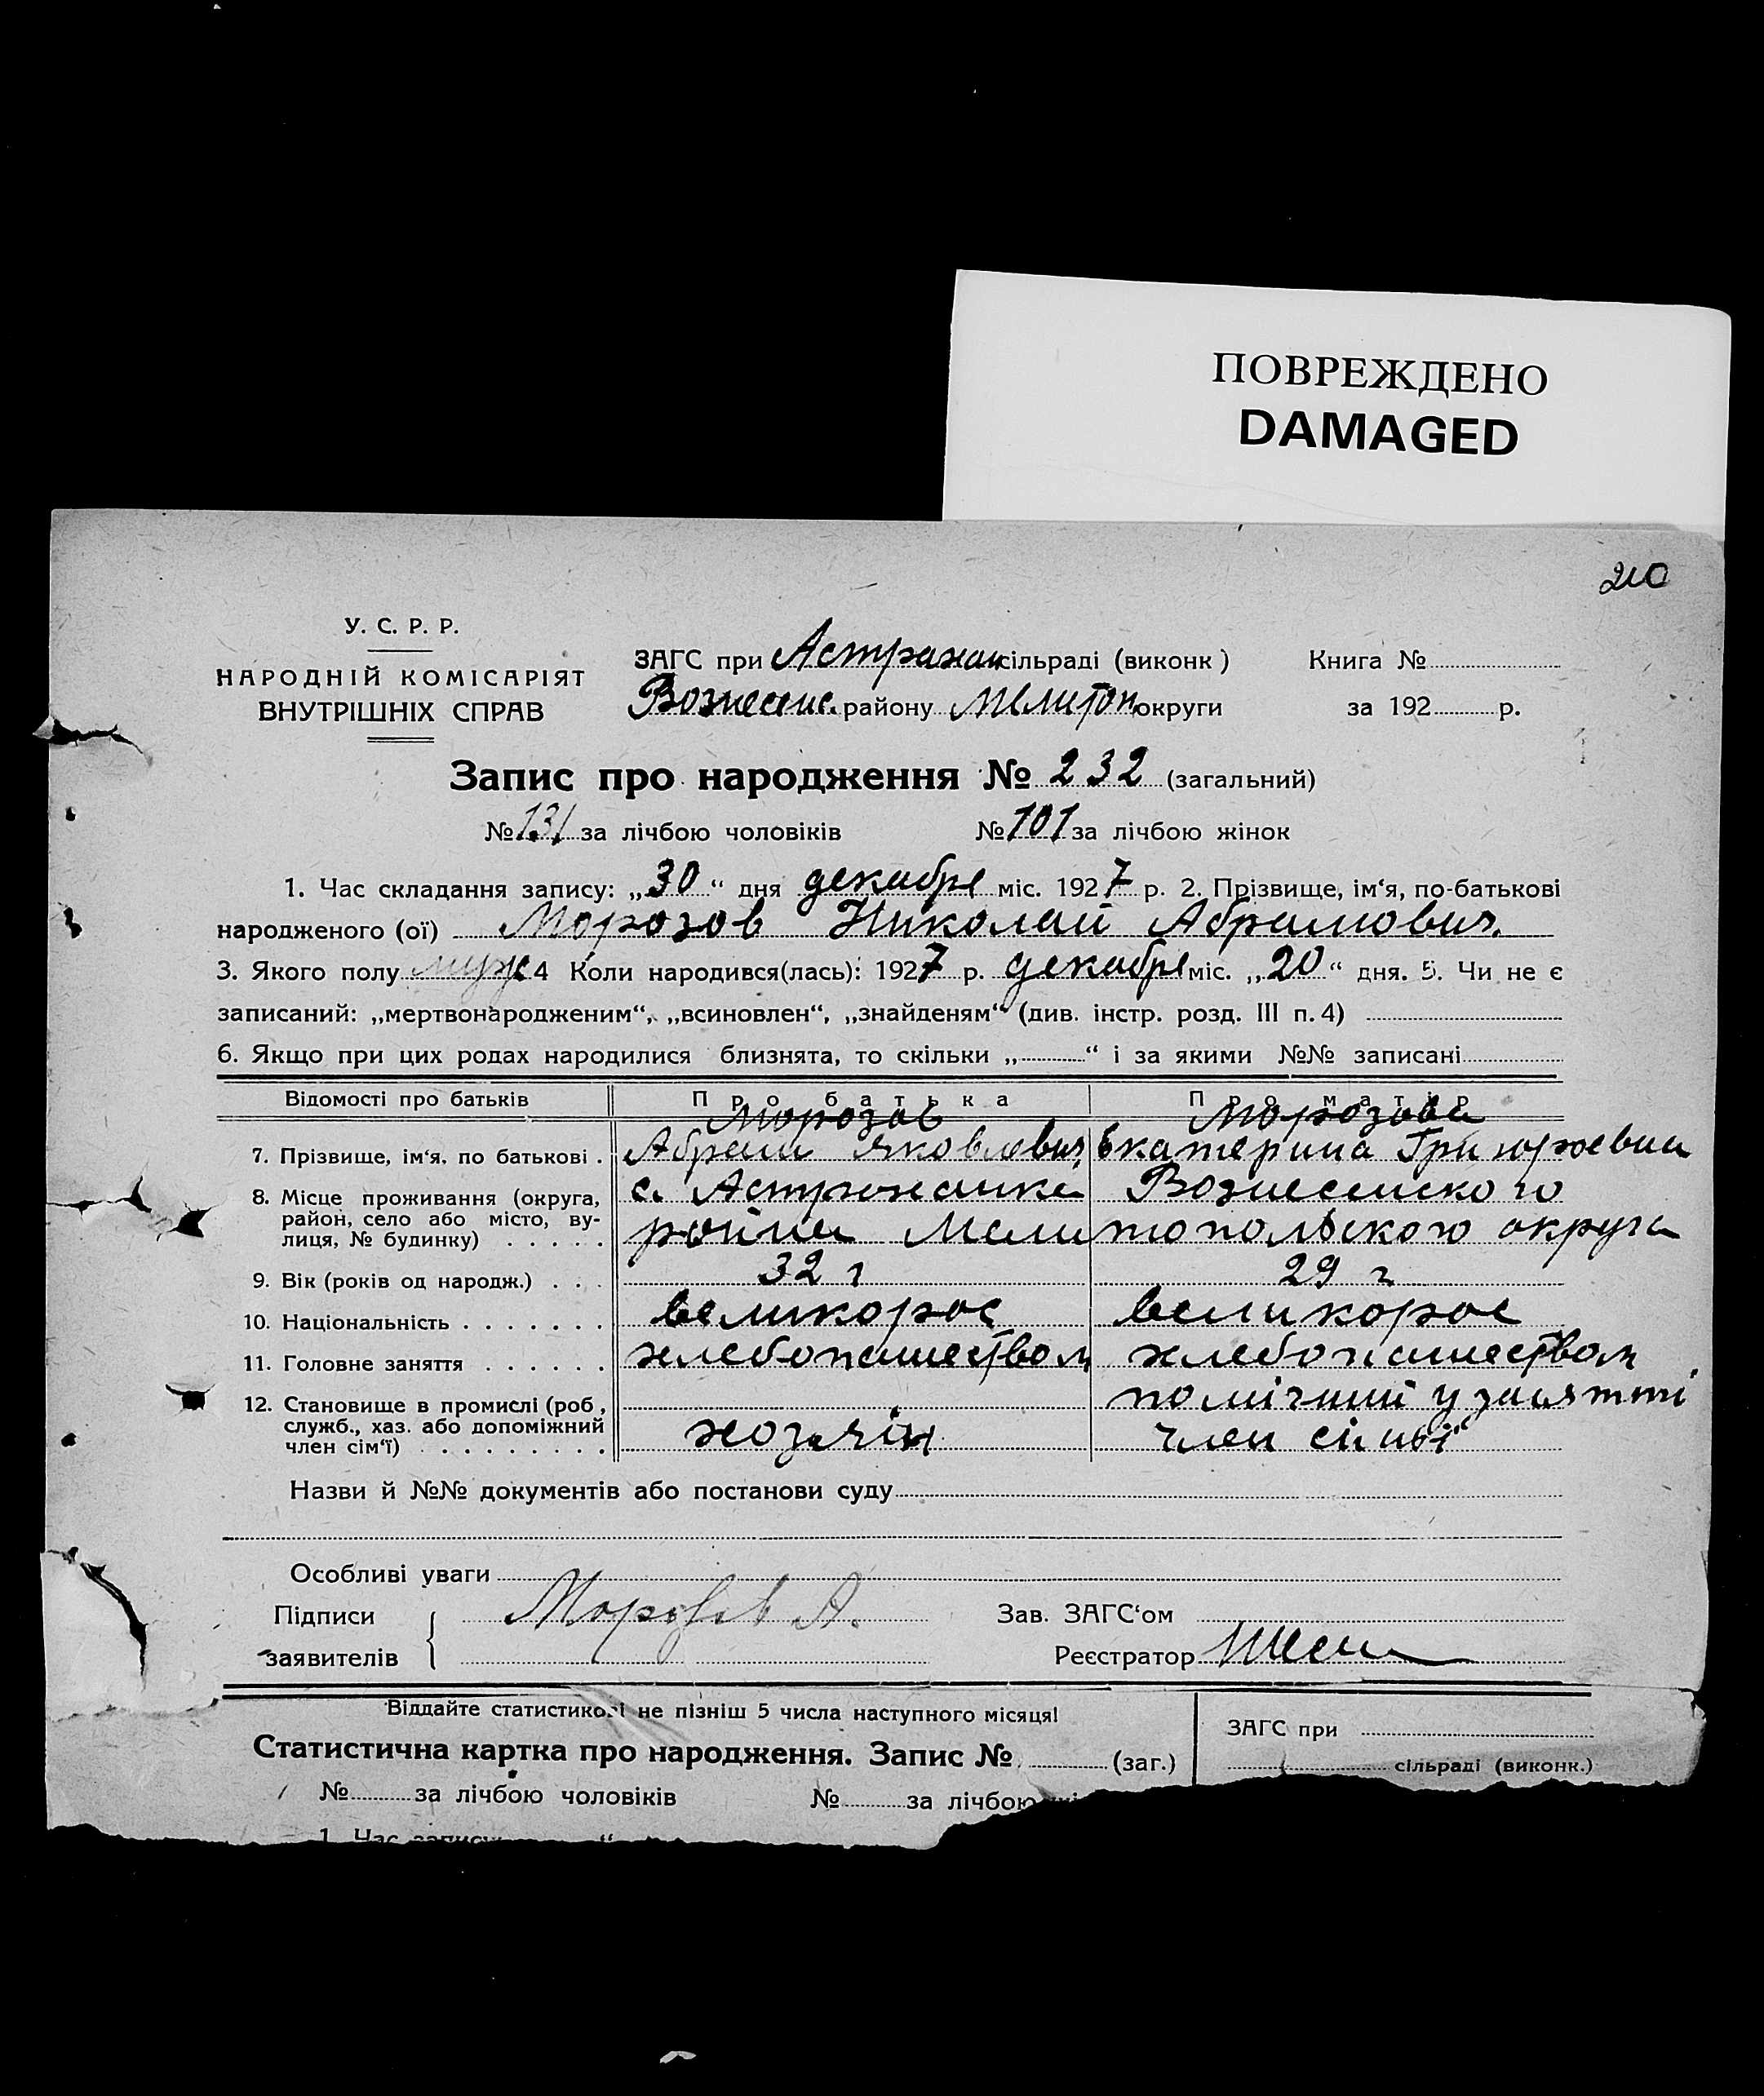 ПОВРЕЖДЕНО
DAMAGED
210
У. С. Р. Р.
НАРОДНІЙ КОМІСАРІЯТ
ВНУТРІШНІХ СПРАВ
ЗАГС при Астрахан сільраді (виконк) Книга №
Вознесенс. району Мелитоп округи за 192 р.
Запис про народження № 232 (загальний)
№ 131 за лічбою чоловіків № 101 за лічбою жінок
1. Час складання запису: „30“ дня декабря міс. 1927 р. 2. Прізвище, ім‘я, по-батькові
народженого (ої) Морозов Николай Абрамович.
3. Якого полу муж 4 Коли народився(лась): 1927 р. декабря міс. „20“ дня. 5. Чи не є
записаний: „мертвонародженим“, „всиновлен“, „знайденям“ (див. інстр. розд. III п. 4)
6. Якщо при цих родах народилися близнята, то скільки „ “ і за якими №№ записані
Відомості про батьків Про батька Про матір
Морозов Морозова
7. Прізвище, ім‘я, по батькові . Абрам Яковлевич Екатерина
8. Місце проживання (округа, с. Астраханке Вознесенского
район, село або місто, ву-
лиця, № будинку) . . . . . района Мелитопольского округа
9. Вік (років од народж.) . . . 32 г 29 г
10. Національність . . . . . . . великорос великорос
11. Головне заняття . . . . . . хлебопашеством хлебопашеством
12. Становище в промислі (роб, помічний у занятті
служб., хаз. або допоміжний
член сім‘ї) . . . . . . . . . хозяін член сімьї
Назви й №№ документів або постанови суду
Особливі уваги
Підписи Морозов А. Зав. ЗАГС‘ом
заявителів Реєстратор
Віддайте статистикові не пізніш 5 числа наступного місяця!
Статистична картка про народження. Запис № (заг.)
ЗАГС при
сільраді (виконк.)
№ за лічбою чоловіків № за лічбою
1. Час запису